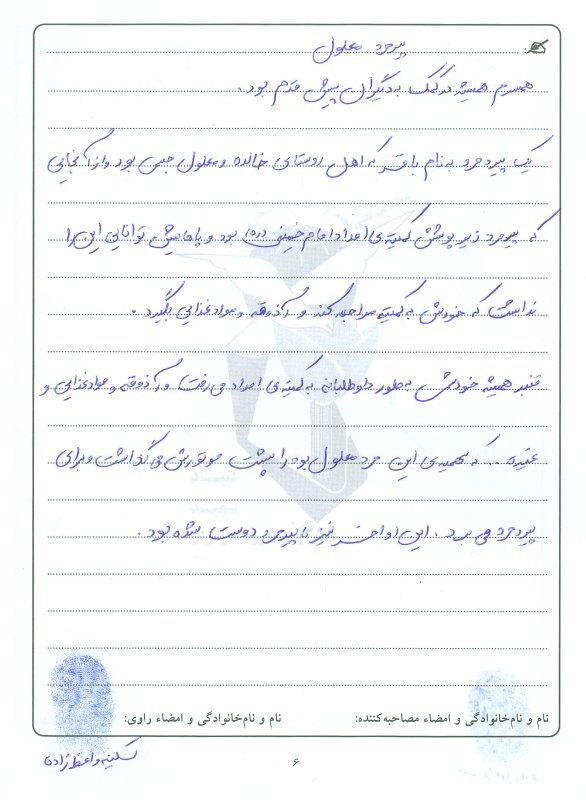 پیرمرد معلول
همسرم همیشه در کمک به دیگران پیش قدم بود.
یک پیرمرد به نام باقر که اهل روستای خالده و معلول جسمی بود و از آنجایی
که پیرمرد زیر پوشش کمیته‌ی امداد امام خمینی (ره) بود و پاهایش توانایی این را
نداشت که خودش به کمیته مراجعه کند و آذوقه و مواد غذایی بگیرد.
قنبر همیشه خودش به طور داوطلبانه به کمیته‌ی امداد می‌رفت و آذوقه و مواد غذایی و
غیره .. که سهمیه‌ی این مرد معلول بود را پشت موتورش می‌گذاشت و برای
پیرمرد می‌برد. این اواخر نیز با پیرمرد دوست شده بود.
نام و نام‌خانوادگی و امضاء مصاحبه‌کننده: نام و نام‌خانوادگی و امضاء راوی:
سکینه واعظ‌زاده
۶